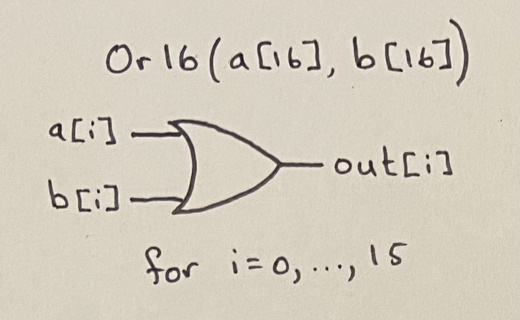 Or16(a[16], b[16])
a[i]
out[i]
b[i]
for i=0,...,15